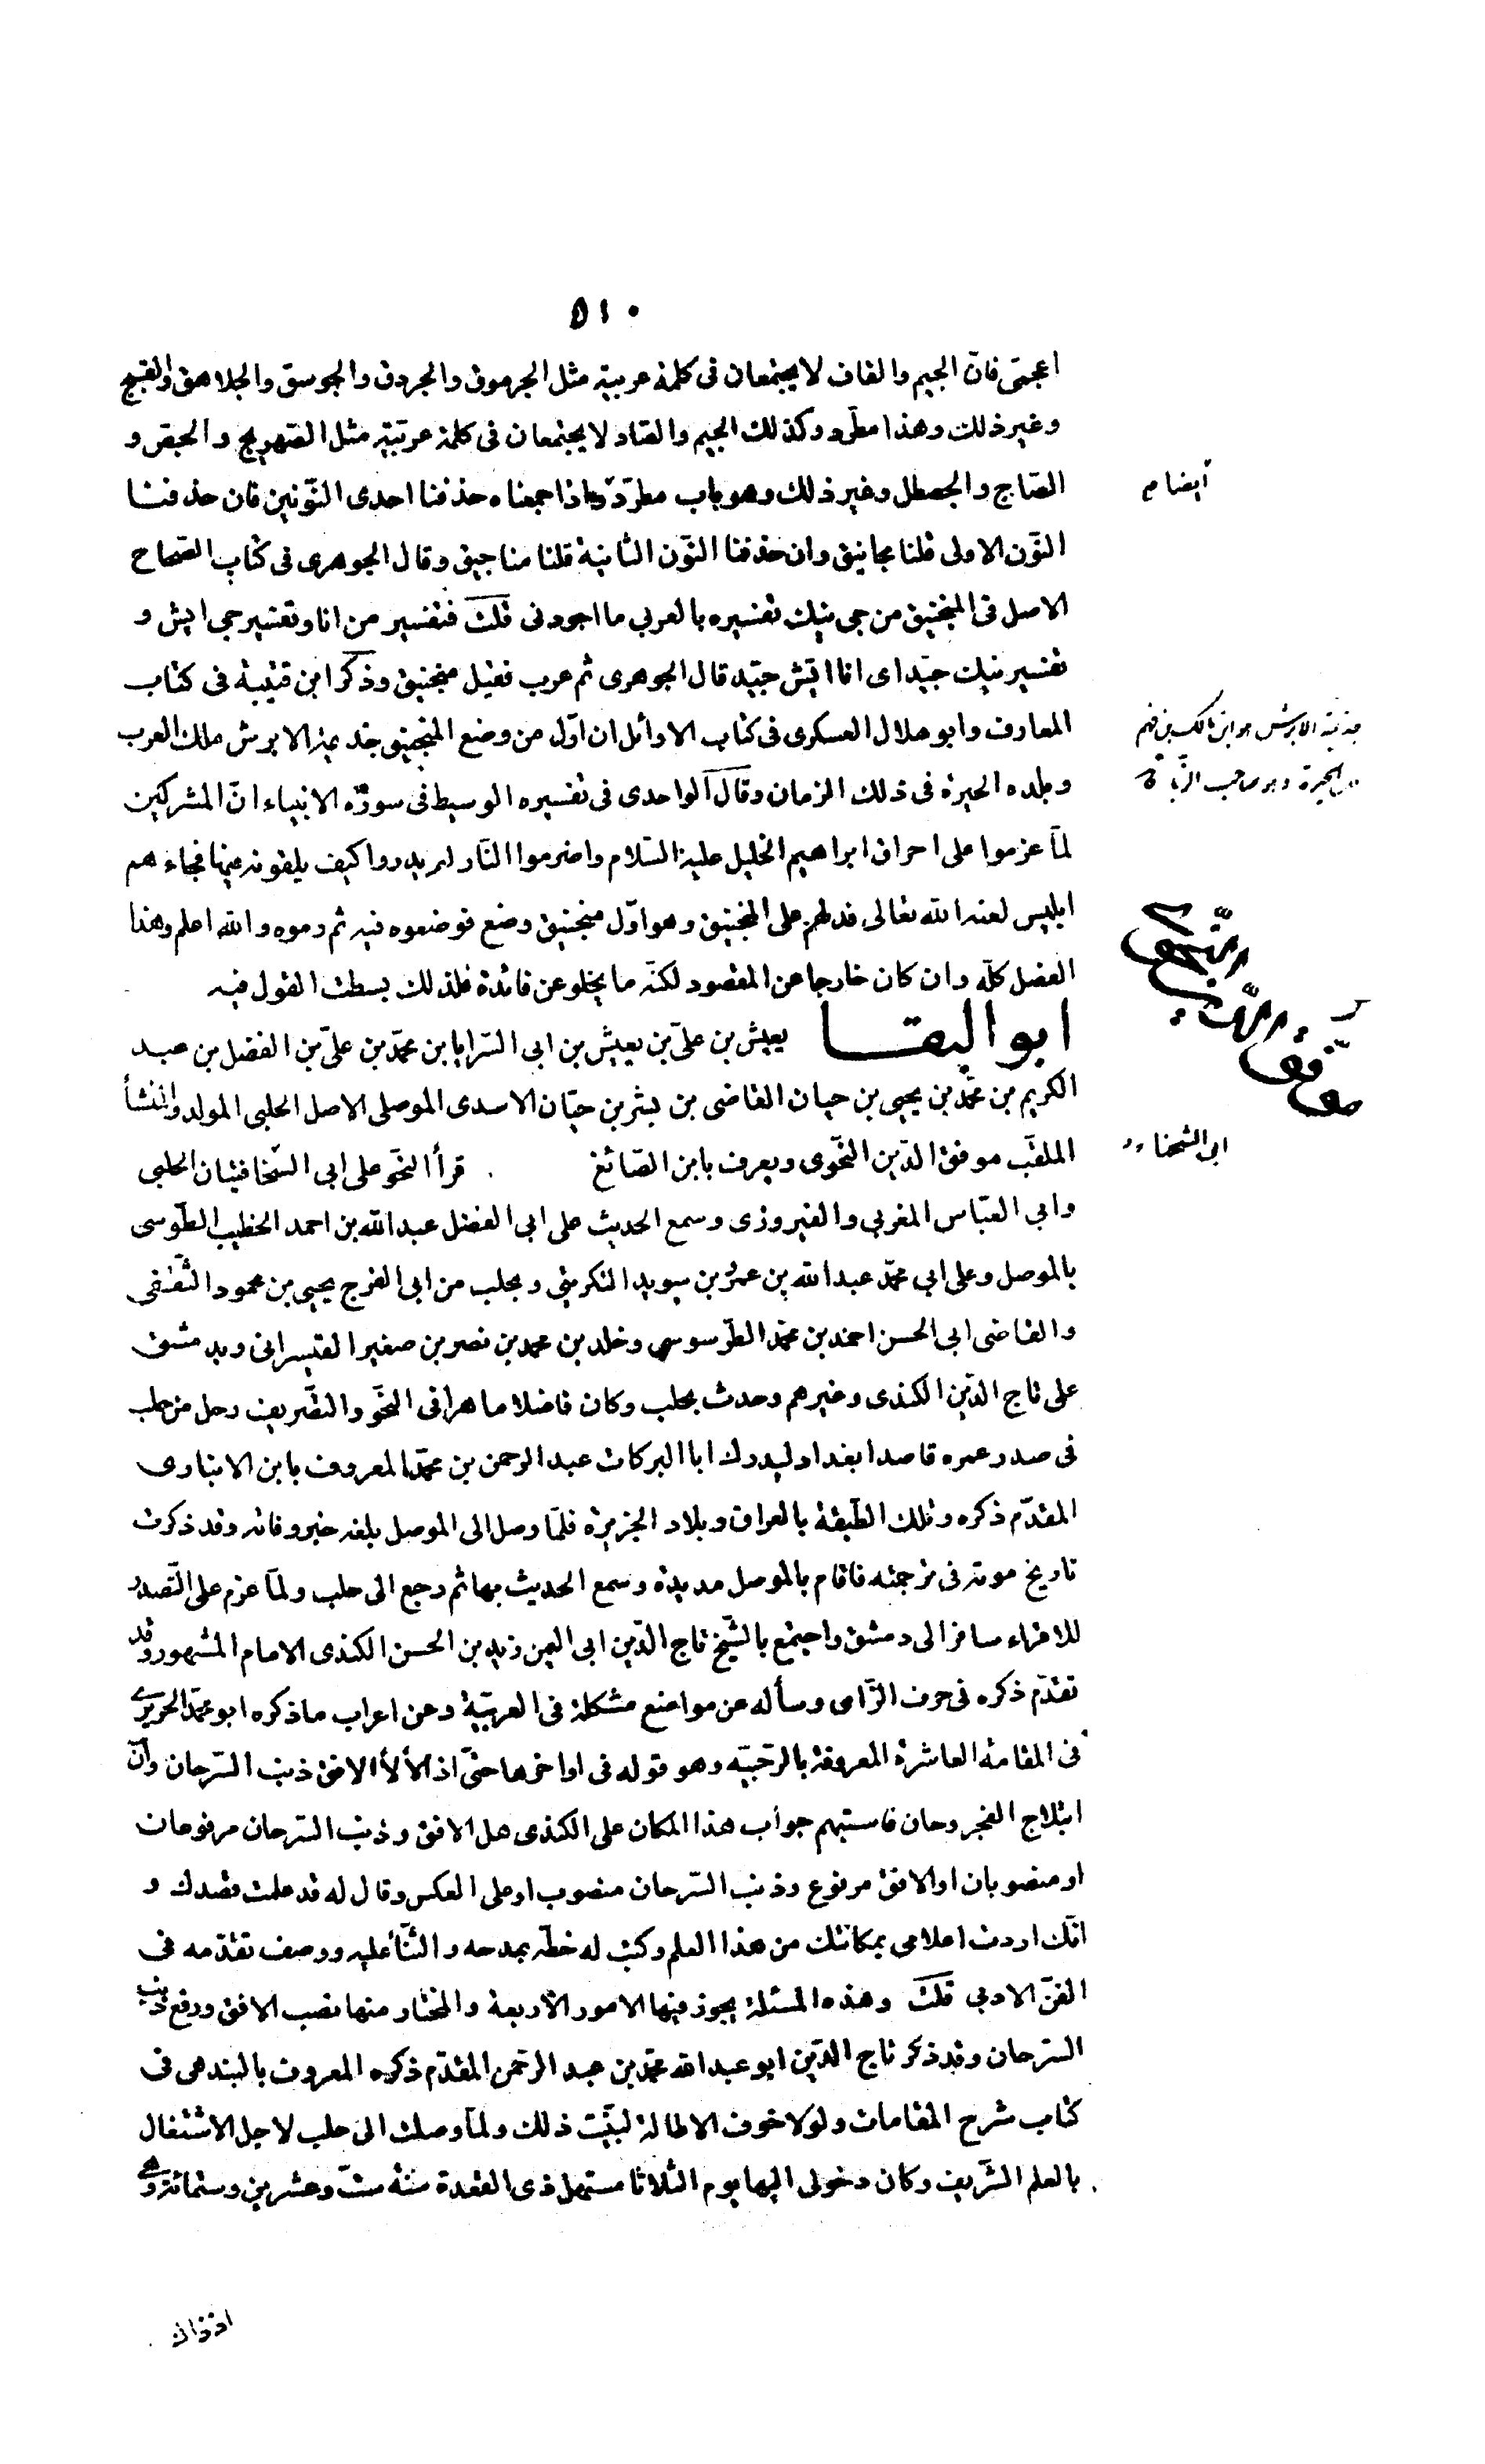 ٥١٠
اعجمى فانّ الجيم والقاف لا يجتمعان فى كلمة عربية مثل الجرموق والجردق والجوسق والجلاهق والقبج
وغير ذلك وهذا مطّرد وكذلك الجيم والصّاد لا يجتمعان فى كلمة عربيّة مثل الصّهريج والجصّ و
الصّاج والجصطل وغير ذلك وهو باب مطرّد واذا جمعناه حذفنا احدى النّونين فان حذفنا
ايضا م
النّون الاولى قلنا مجانيق وان حذفنا النّون الثانية قلنا مناجيق وقال الجوهرى فى كتاب الصّحاح
الاصل فى المنجنيق من جى نيك تفسيره بالعربي ما اجودنى قلت فتفسير من انا وتفسير جى ايش و
تفسير نيك جيّد اى انا ايّش جيّد قال الجوهرى ثم عرب فقيل منجنيق وذكر ابن قتيبة فى كتاب
المعارف وابو هلال العسكرى فى كتاب الاوائل ان اوّل من وضع المنجنيق جذيمة الابرش ملك العرب
جذيمة الابرش هو ابن مالك بن فهم
وبلده الحيرة فى ذلك الزمان وقال الواحدى فى تفسيره الوسيط فى سورة الانبياء انّ المشركين
الحيرة وهو صاحب الزّبا
لمّا عزموا على احراق ابراهيم الخليل عليه السّلام واضرموا النّار لم يدروا كيف يلقونه فيها فجاءهم
ابليس لعنه الله تعالى فدلهم على المنجنيق وهو اوّل منجنيق وضع فوضعوه فيه ثم رموه والله اعلم وهذا
الفصل كلّه وان كان خارجا عن المقصود لكنّه ما يخلو عن فائدة فلذلك بسطت القول فيه
موفّق الدّين النّحوى
ابو البقا يعيش بن علىّ بن يعيش بن ابى السّرايا بن محمّد بن علىّ بن الفضل بن عبد
الكريم بن محمّد بن يحيى بن حيان القاضى بن بشر بن حيّان الاسدى الموصلى الاصل الحلبى المولد والمنشأ
الملقّب موفق الدّين النّحوى ويعرف بابن الصّائغ قرأ النّحو على ابى السّخا فتيان الحلبى
ابى الشحناء
وابى العبّاس المغربى والفيروزى وسمع الحديث على ابى الفضل عبد الله بن احمد الخطيب الطّوسى
بالموصل وعلى ابى محمّد عبد الله بن عمر بن سويد التكريتى وبحلب من ابى الفرج يحيى بن محمود الثّقفى
والقاضى ابى الحسن احمد بن محمّد الطّرسوسى وخلد بن محمد بن نصر بن صغير القيسرانى وبدمشق
على تاج الدّين الكندى وغيرهم وحدث بحلب وكان فاضلا ماهرا فى النّحو والتّصريف رحل من حلب
فى صدر عمره قاصدا بغداد ليدرك ابا البركات عبد الرحمن بن محمّد المعروف بابن الانبارى
المقدّم ذكره وتلك الطّبقة بالعراق وبلاد الجزيرة فلمّا وصل الى الموصل بلغه خبر وفاته وقد ذكرت
تاريخ موته فى ترجمته فاقام بالموصل مديدة وسمع الحديث بها ثم رجع الى حلب ولمّا عزم على التّصدر
للاقراء سافر الى دمشق واجتمع بالشّيخ تاج الدّين ابى اليمن زيد بن الحسن الكندى الامام المشهور وقد
تقدّم ذكره فى حرف الزّاى وسأله عن مواضع مشكلة فى العربيّة وعن اعراب ما ذكره ابو محمّد الحريرى
فى المقامة العاشرة المعروفة بالرّحبيّه وهو قوله فى اواخرها حتّى اذا لألأ الافق ذنب السّرحان وآن
ابتلاج الفجر وحان فاستبهم جواب هذا المكان على الكندى هل الافق وذنب السّرحان مرفوعان
او منصوبان او الافق مرفوع وذنب السّرحان منصوب او على العكس وقال له قد علمت قصدك و
انّك اردت اعلامى بمكانتك من هذا العلم وكتب له خطّه بمدحه والثّناء عليه ووصف تقدّمه فى
الفنّ الادبى قلت وهذه المسئلة يجوز فيها الامور الاربعة والمختار منها نصب الافق ورفع ذنب
السّرحان وقد ذكر تاج الدّين ابو عبد الله محمّد بن عبد الرّحمن المقدّم ذكره المعروف بالبندهى فى
كتاب شرح المقامات ولولا خوف الاطالة لبيّنت ذلك ولمّا وصلت الى حلب لاجل الاشتغال
بالعلم الشّريف وكان دخولى اليها يوم الثّلاثا مستهل ذى القعدة سنة ستّ وعشرين وستمائة وهى
اذ ذاك